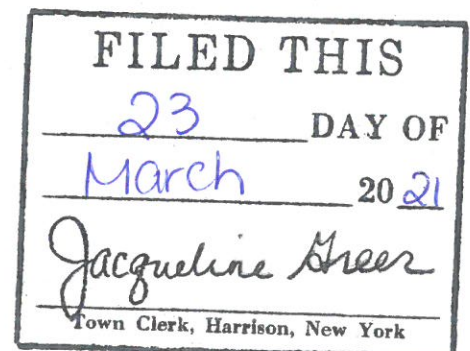 FILED THIS
23 DAY OF
March 20 21
Jacqueline Greer
Town Clerk, Harrison, New York